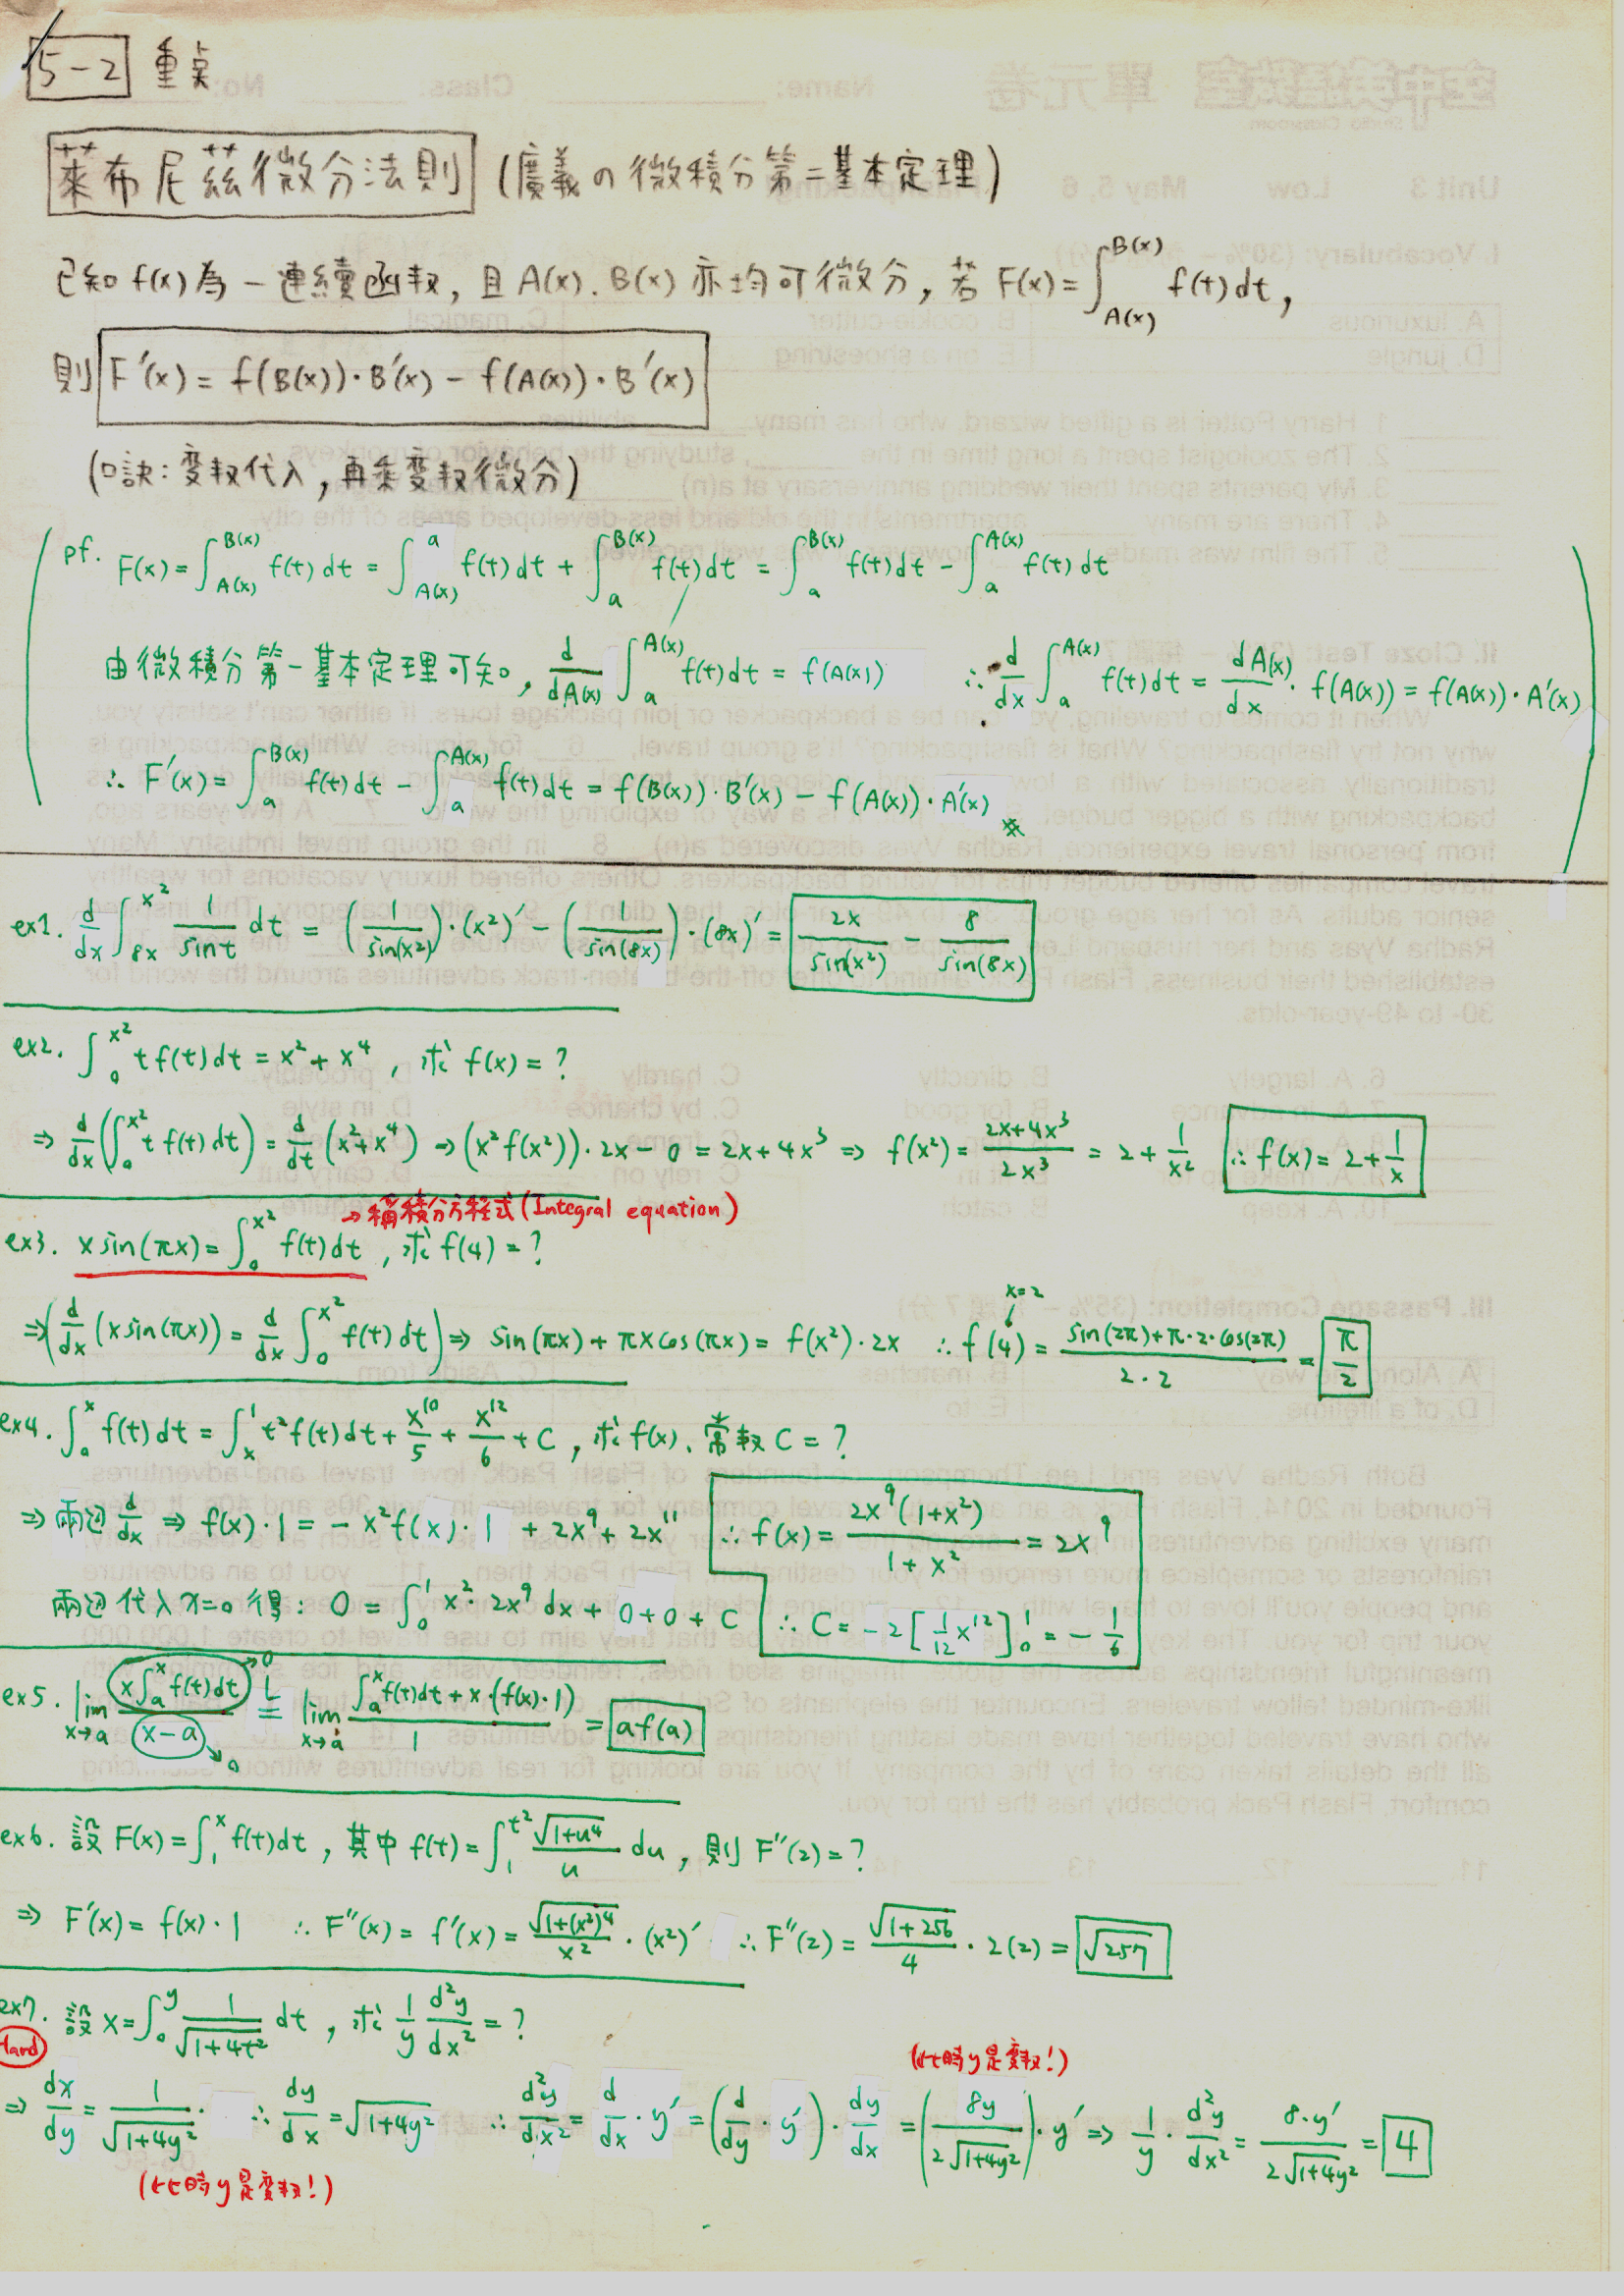 5-2 重点
萊布尼茲微分法則 (廣義の微積分第二基本定理)
已知 f(x) 為一連續函数, 且 A(x). B(x) 亦均可微分, 若 F(x) = ∫_{A(x)}^{B(x)} f(t) dt,
則 F'(x) = f(B(x))·B'(x) - f(A(x))·B'(x)
(口訣: 变数代入, 再乘变数微分)
pf. F(x) = ∫_{A(x)}^{B(x)} f(t) dt = ∫_{A(x)}^{a} f(t) dt + ∫_{a}^{B(x)} f(t) dt = ∫_{a}^{B(x)} f(t) dt - ∫_{a}^{A(x)} f(t) dt
由微積分第一基本定理可知, d/dA(x) ∫_{a}^{A(x)} f(t) dt = f(A(x)) ∴ d/dx ∫_{a}^{A(x)} f(t) dt = dA(x)/dx · f(A(x)) = f(A(x))·A'(x)
∴ F'(x) = ∫_{a}^{B(x)} f(t) dt - ∫_{a}^{A(x)} f(t) dt = f(B(x))·B'(x) - f(A(x))·A'(x) ※
ex1. d/dx ∫_{8x}^{x²} 1/sint dt = (1/sin(x²))·(x²)' - (1/sin(8x))·(8x)' = 2x/sin(x²) - 8/sin(8x)
ex2. ∫_{0}^{x²} t f(t) dt = x² + x⁴, 求 f(x) = ?
⇒ d/dx (∫_{0}^{x²} t f(t) dt) = d/dt (x²+x⁴) ⇒ (x² f(x²))·2x - 0 = 2x+4x³ ⇒ f(x²) = (2x+4x³)/(2x³) = 2 + 1/x² ∴ f(x) = 2 + 1/x
→ 稱積分方程式 (Integral equation)
ex3. x sin(πx) = ∫_{0}^{x²} f(t) dt, 求 f(4) = ?
x=2
⇒ (d/dx (x sin(πx)) = d/dx ∫_{0}^{x²} f(t) dt) ⇒ sin(πx) + πx cos(πx) = f(x²)·2x ∴ f(4) = (sin(2π)+π·2·cos(2π))/(2·2) = π/2
ex4. ∫_{a}^{x} f(t) dt = ∫_{x}^{1} t² f(t) dt + x¹⁰/5 + x¹²/6 + C, 求 f(x)、常数 C = ?
⇒ 兩边 d/dx ⇒ f(x)·1 = -x² f(x)·1 + 2x⁹ + 2x¹¹ ∴ f(x) = 2x⁹(1+x²)/(1+x²) = 2x⁹
兩边代入 x=0 得: 0 = ∫_{0}^{1} x²·2x⁹ dx + 0+0+C ∴ C = -2[1/12 x¹²]_{0}^{1} = -1/6
ex5. lim_{x→a} (x∫_{a}^{x} f(t) dt)→0/(x-a)→0 =^L lim_{x→a} (∫_{a}^{x} f(t) dt + x·(f(x)·1))/1 = a f(a)
ex6. 設 F(x) = ∫_{1}^{x} f(t) dt, 其中 f(t) = ∫_{1}^{t²} √(1+u⁴)/u du, 則 F''(2) = ?
⇒ F'(x) = f(x)·1 ∴ F''(x) = f'(x) = √(1+(x²)⁴)/x² · (x²)' ∴ F''(2) = √(1+256)/4 · 2(2) = √257
ex7. 設 x = ∫_{0}^{y} 1/√(1+4t²) dt, 求 1/y d²y/dx² = ?
Hard
(此時y是变数!)
⇒ dx/dy = 1/√(1+4y²) · ∴ dy/dx = √(1+4y²) ∴ d²y/dx² = d/dx · y' = (d/dy · y')·dy/dx = (8y/(2√(1+4y²)))·y' ⇒ 1/y · d²y/dx² = 8·y'/(2√(1+4y²)) = 4
(此時y是变数!)